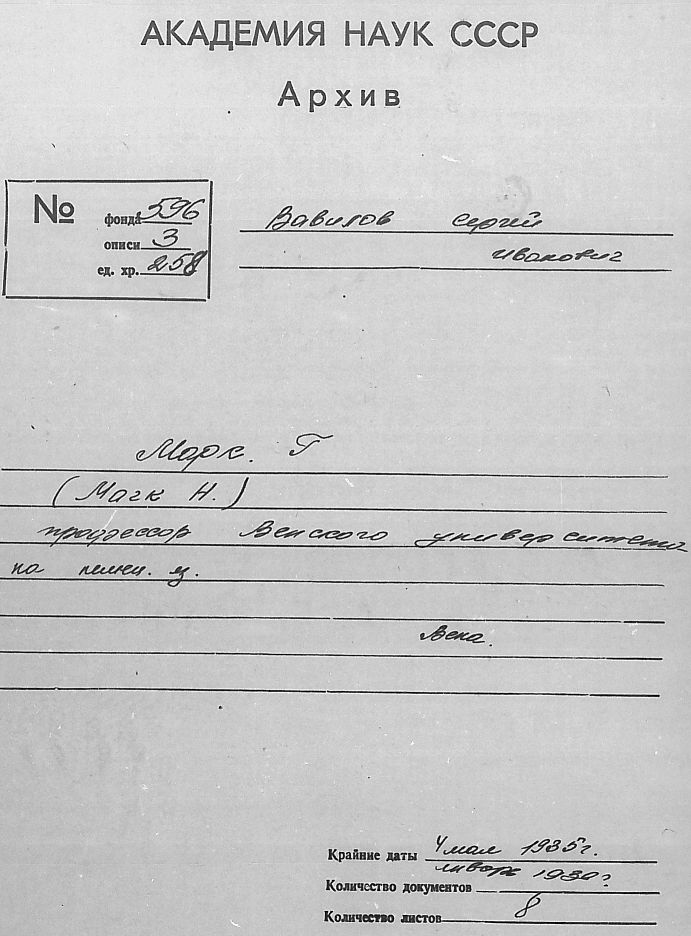 АКАДЕМИЯ НАУК СССР
Архив
№
фонда 596
описи 3
ед. хр. 258
Вавилов Сергей
Иванович
Марк. Г
(Mark H.)
профессор Венского университета
на немец. яз.
Вена.
Крайние даты 4 мая 1935 г.
январь
Количество документов
Количество листов 8